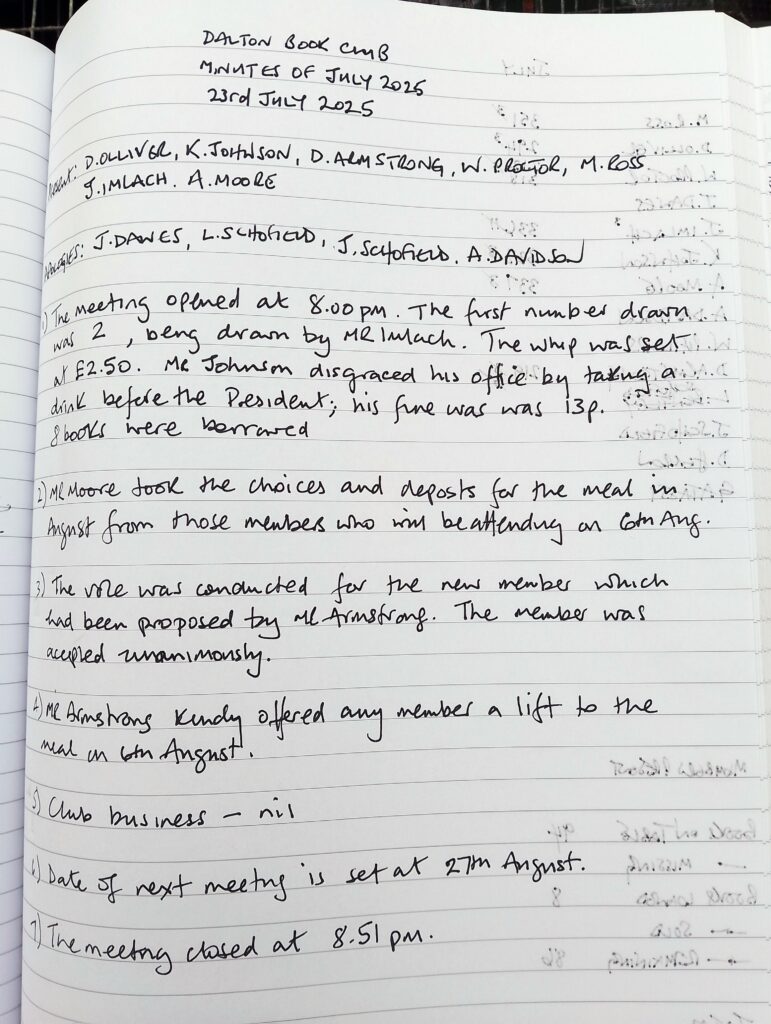 DALTON BOOK CLUB
MINUTES OF JULY 2025
23rd JULY 2025
Present: D.OLLIVER, K.JOHNSON, D.ARMSTRONG, W.PROCTOR, M.ROSS
J.IMLACH. A.MOORE
Apologies: J.DAWES, L.SCHOFIELD, J.SCHOFIELD, A.DAVIDSON
1) The meeting opened at 8.00pm. The first number drawn
was 2, being drawn by MR Imlach. The whip was set
at £2.50. MR Johnson disgraced his office by taking a
drink before the President; his fine was was 13p.
8 books were borrowed
2) MR Moore took the choices and deposts for the meal in
August from those members who will be attending on 6th Aug.
3) The vote was conducted for the new member which
had been proposed by MR Armstrong. The member was
accepted unanimously.
4) MR Armstrong kindly offered any member a lift to the
meal on 6th August.
5) Club business – nil
6) Date of next meeting is set at 27th August.
7) The meeting closed at 8.51 pm.